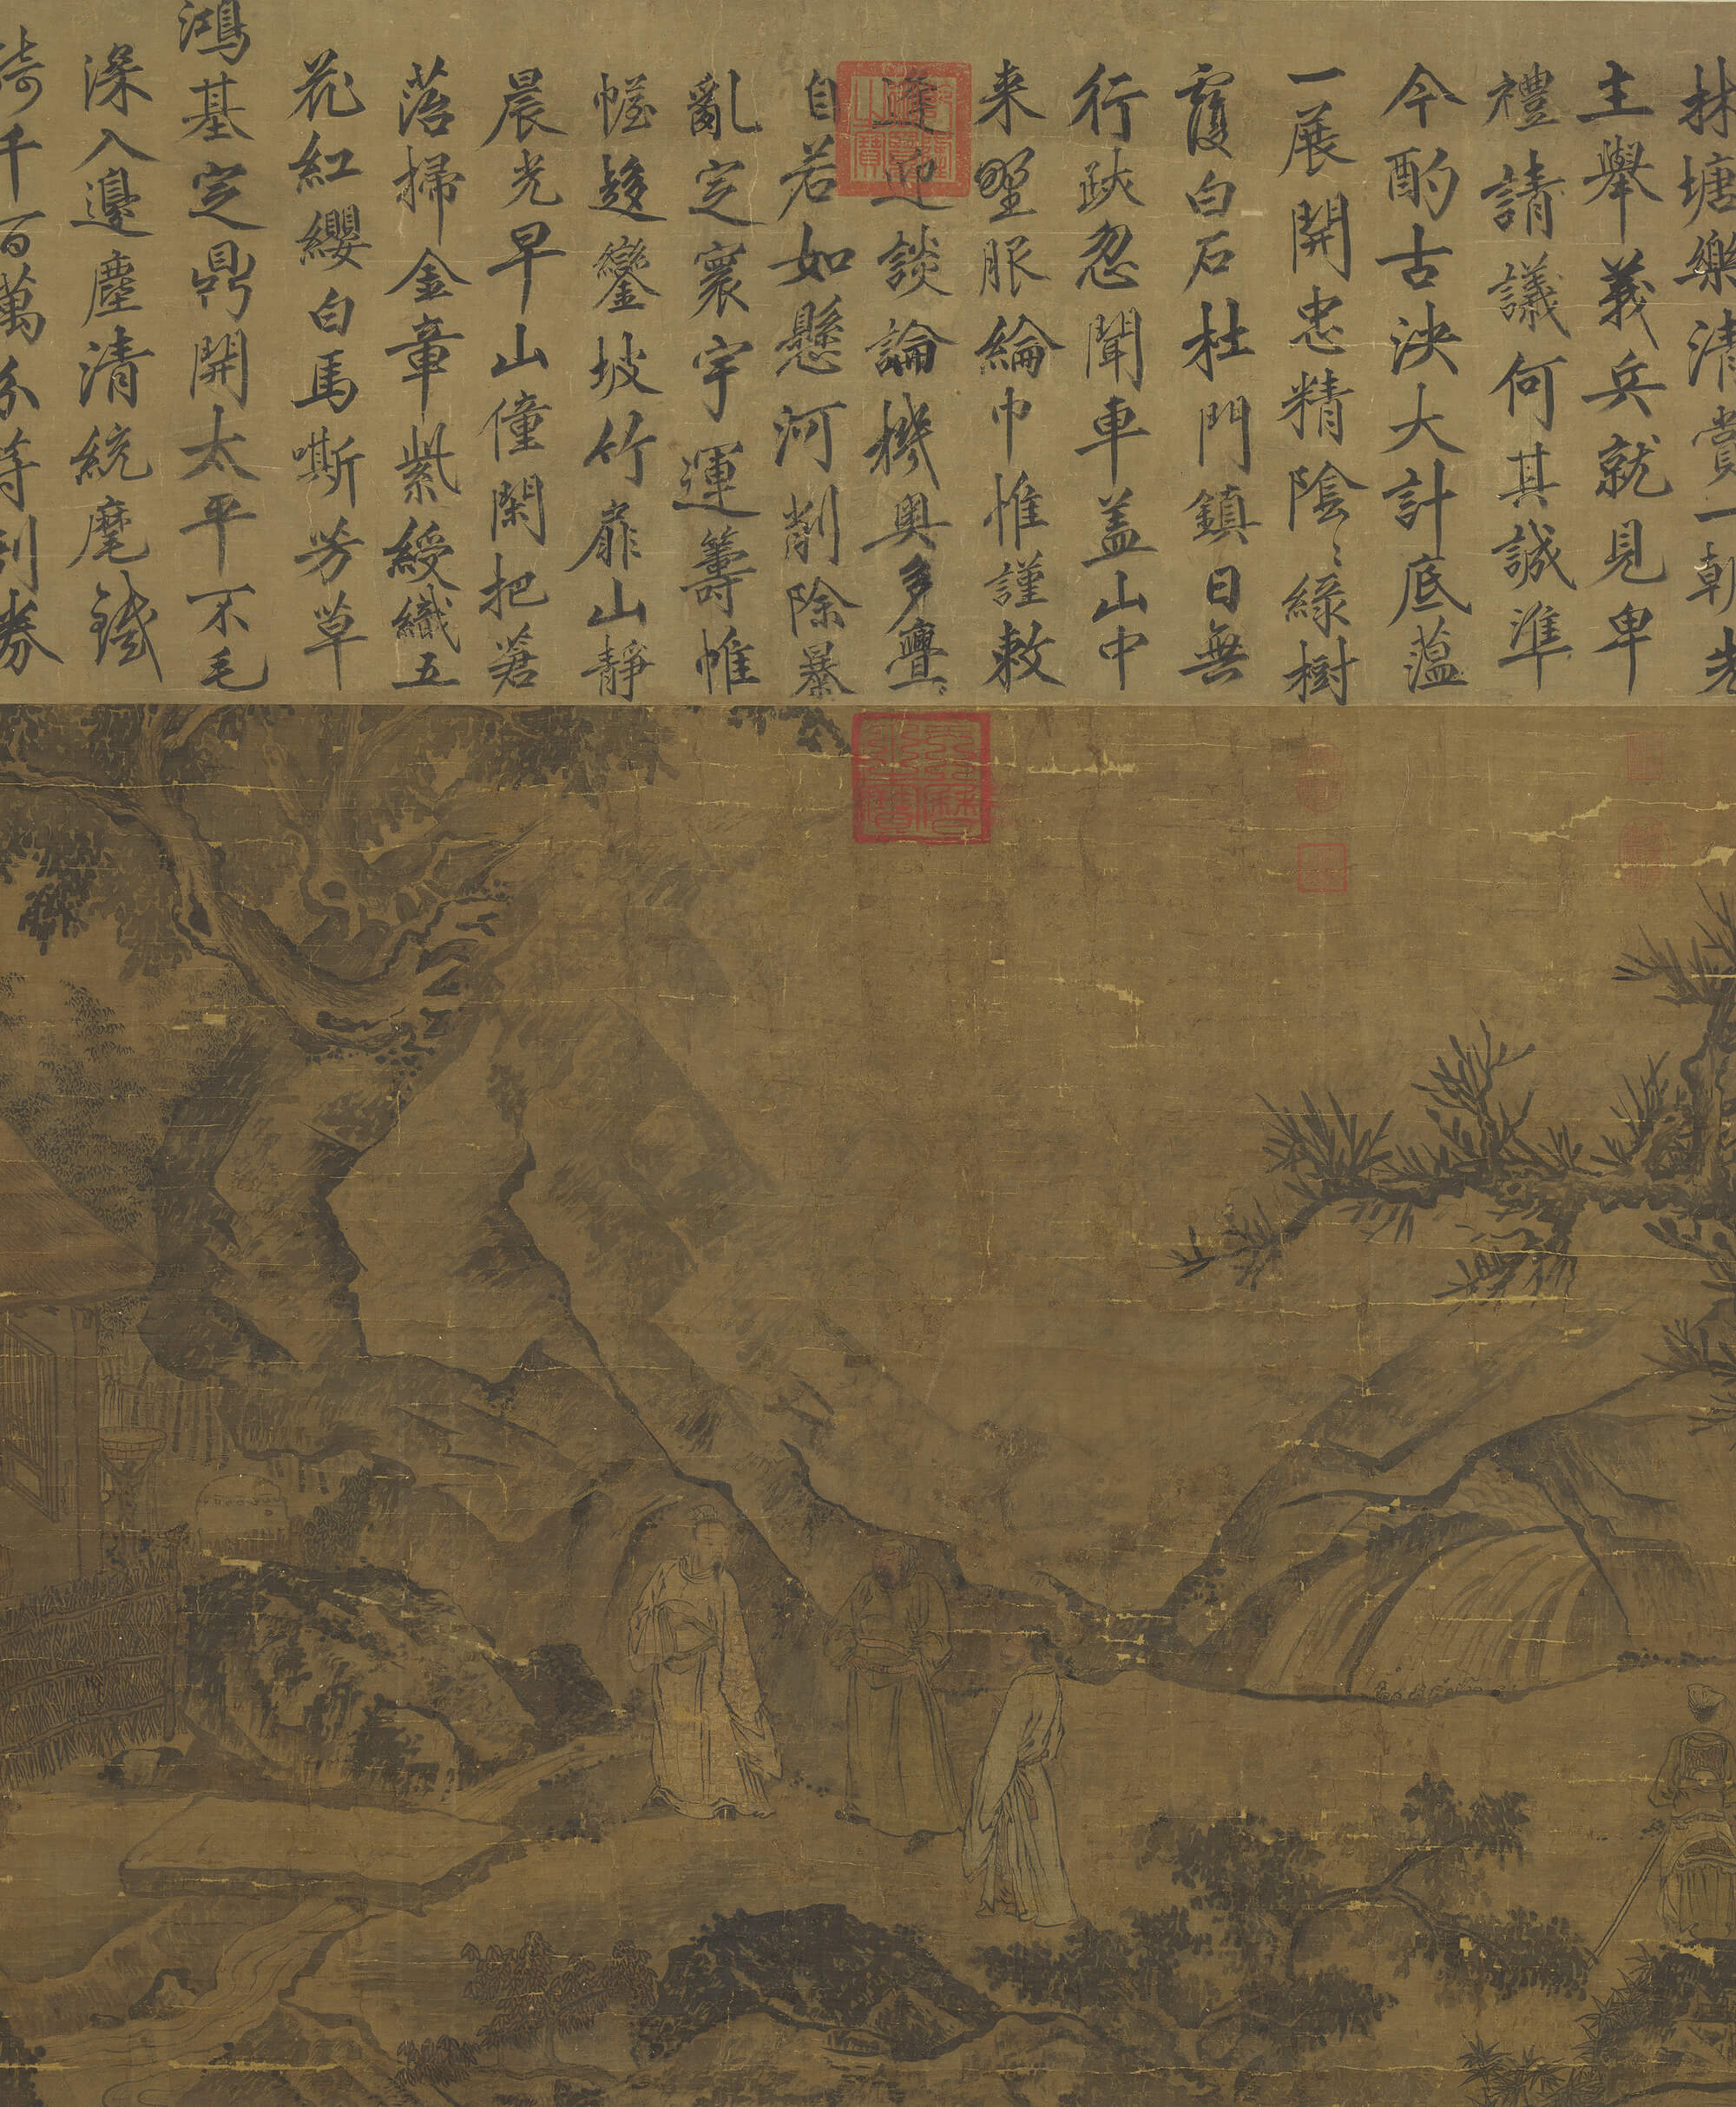 林塘樂清賞一朝先
主舉義兵就見卑
禮請議何其誠準
今酌古決大計底蘊
一展開忠精陰〻綠樹
覆白石杜門鎮日無
行跡忽聞車盖山中
来野服綸巾惟謹敕
逢迎談論機奧多亹〻
自若如懸河削除暴
亂定寰宇運籌帷
幄趍鑾坡竹扉山靜
晨光早山僮閑把箬
落掃金章紫綬織五
花紅纓白馬嘶芳草
鴻基定鼎開太平不毛
深入邊塵清統麾鐵
騎千百萬
天曆之寶